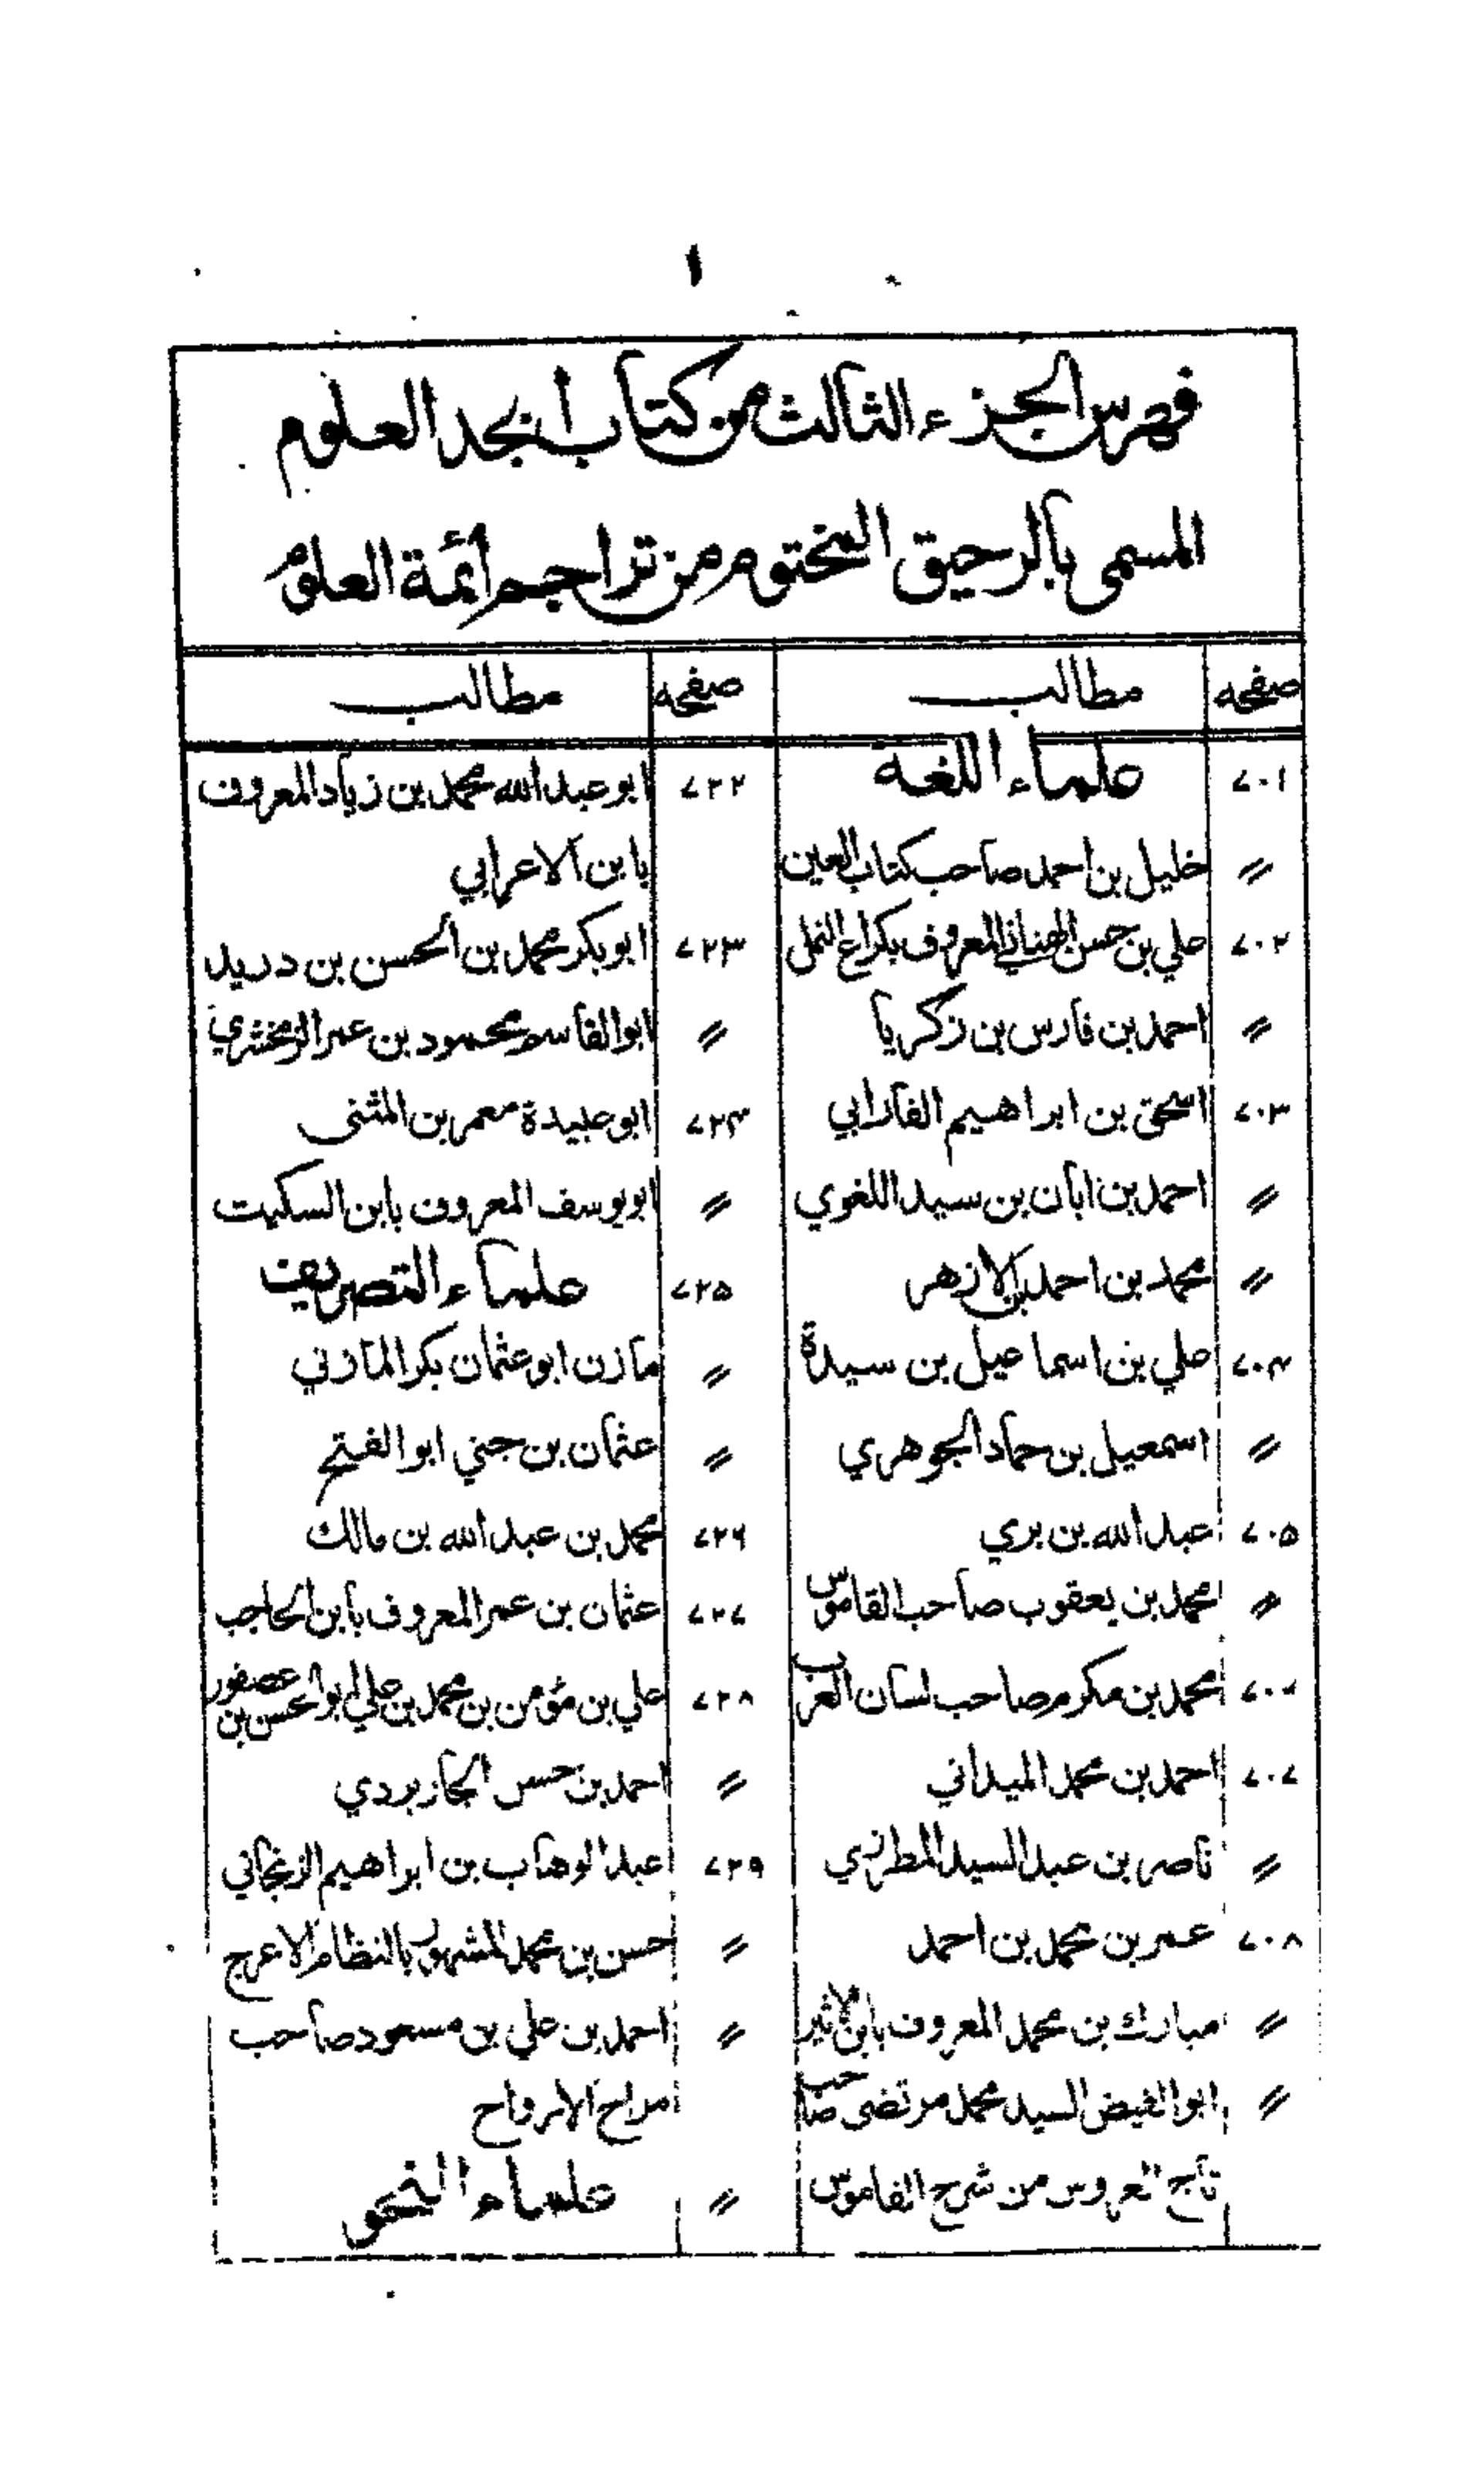 ١
فهرس الجزء الثالث من كتاب أبجد العلوم
المسمى بالرحيق المختوم من تراجم أئمة العلوم
صفحه مطالب
٧٠١ علماء اللغة
〃 خليل بن احمد صاحب كتاب العين
٧٠٢ علي بن حسن الهنائي المعروف بكراع النمل
〃 احمد بن فارس بن زكريا
٧٠٣ اسحق بن ابراهيم الفارابي
〃 احمد بن ابان بن سيد اللغوي
〃 محمد بن احمد بن الازهر
٧٠٤ علي بن اسماعيل بن سيدة
〃 اسمعيل بن حماد الجوهري
٧٠٥ عبد الله بن بري
〃 محمد بن يعقوب صاحب القاموس
٧٠٦ محمد بن مكرم صاحب لسان العرب
٧٠٧ احمد بن محمد الميداني
〃 ناصر بن عبد السيد المطرزي
٧٠٨ عمر بن محمد بن احمد
〃 مبارك بن محمد المعروف بابن الاثير
〃 ابو الفيض السيد محمد مرتضى صاحب
تاج العروس من شرح القاموس
صفحه مطالب
٧٢٢ ابو عبد الله محمد بن زياد المعروف
بابن الاعرابي
٧٢٣ ابو بكر محمد بن الحسن بن دريد
〃 ابو القاسم محمود بن عمر الزمخشري
٧٢٤ ابو عبيدة معمر بن المثنى
〃 ابو يوسف المعروف بابن السكيت
٧٢٥ علماء التصريف
〃 مازن ابو عثمان بكر المازني
〃 عثمان بن جني ابو الفتح
٧٢٦ محمد بن عبد الله بن مالك
٧٢٧ عثمان بن عمر المعروف بابن الحاجب
٧٢٨ علي بن مؤمن بن محمد بن علي ابو الحسن بن عصفور
〃 احمد بن حسن الجاربردي
٧٢٩ عبد الوهاب بن ابراهيم الزنجاني
〃 حسن بن محمد المشهور بالنظام الاعرج
〃 احمد بن علي بن مسعود صاحب
مراح الارواح
〃 علماء النحو